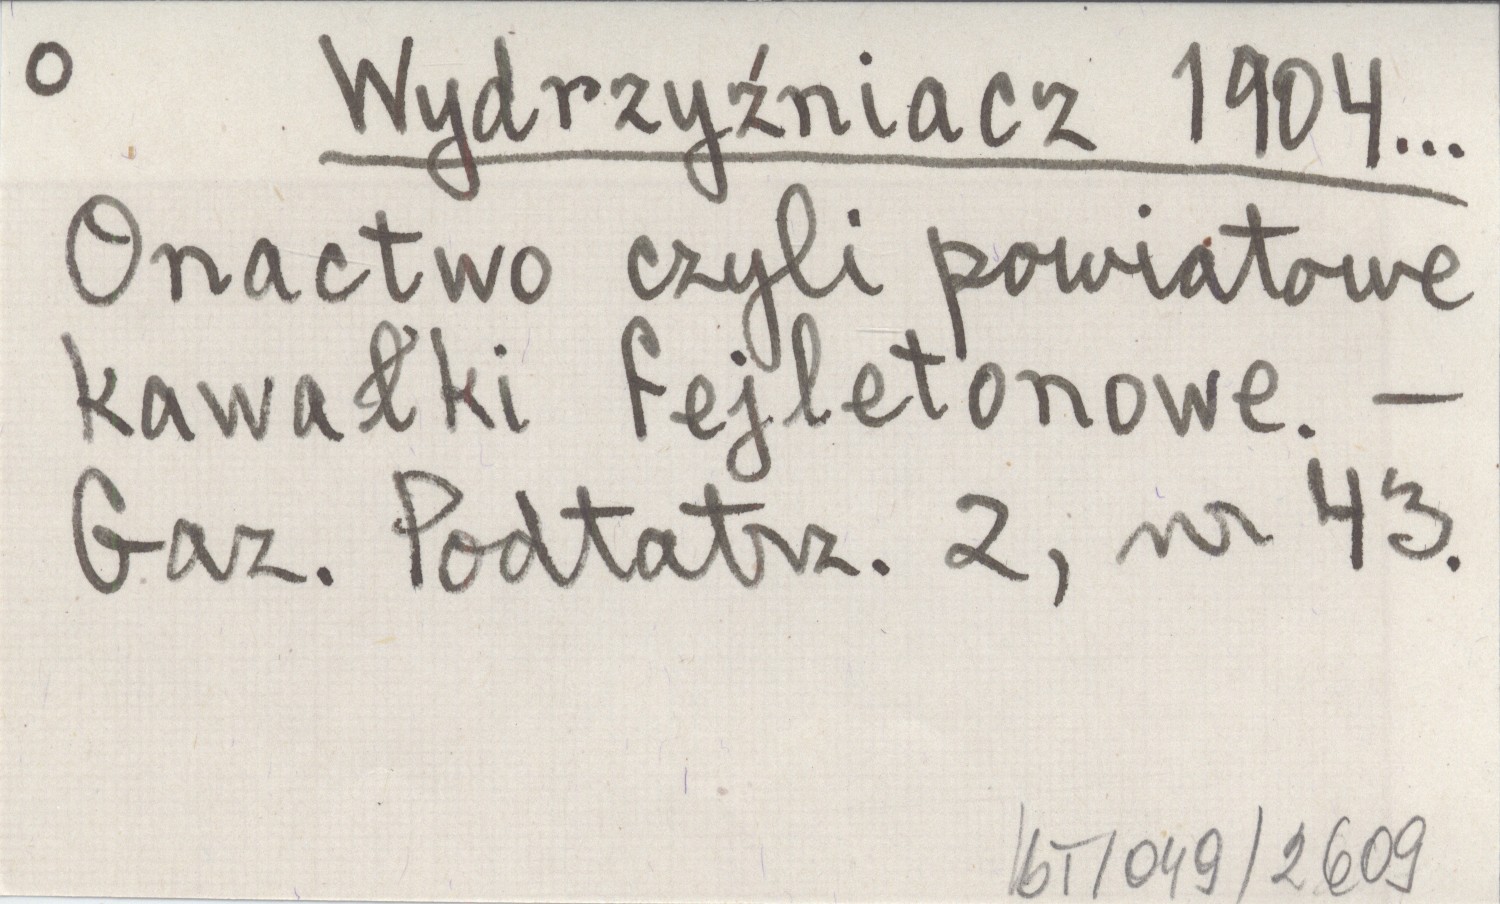 O Wydrzyźniacz 1904...
Onactwo czyli powiatowe
kawałki fejletonowe. –
Gaz. Podtatrz. 2, nr 43.
/bT/049/2609